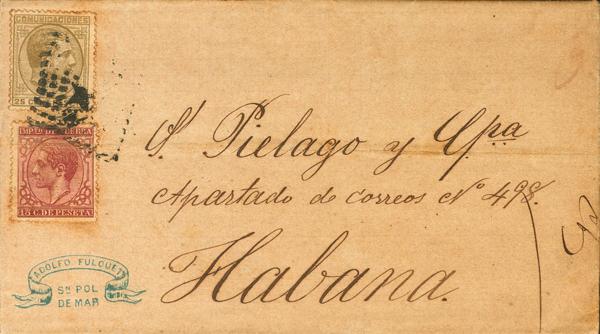 COMUNICACIONES
IMPTO DE GUERRA
15 CS DE PESETA
S. Pielago y Cpa
Apartado de correos No 498.
Habana.
ADOLFO FULQUET
Sn POL
DE MAR